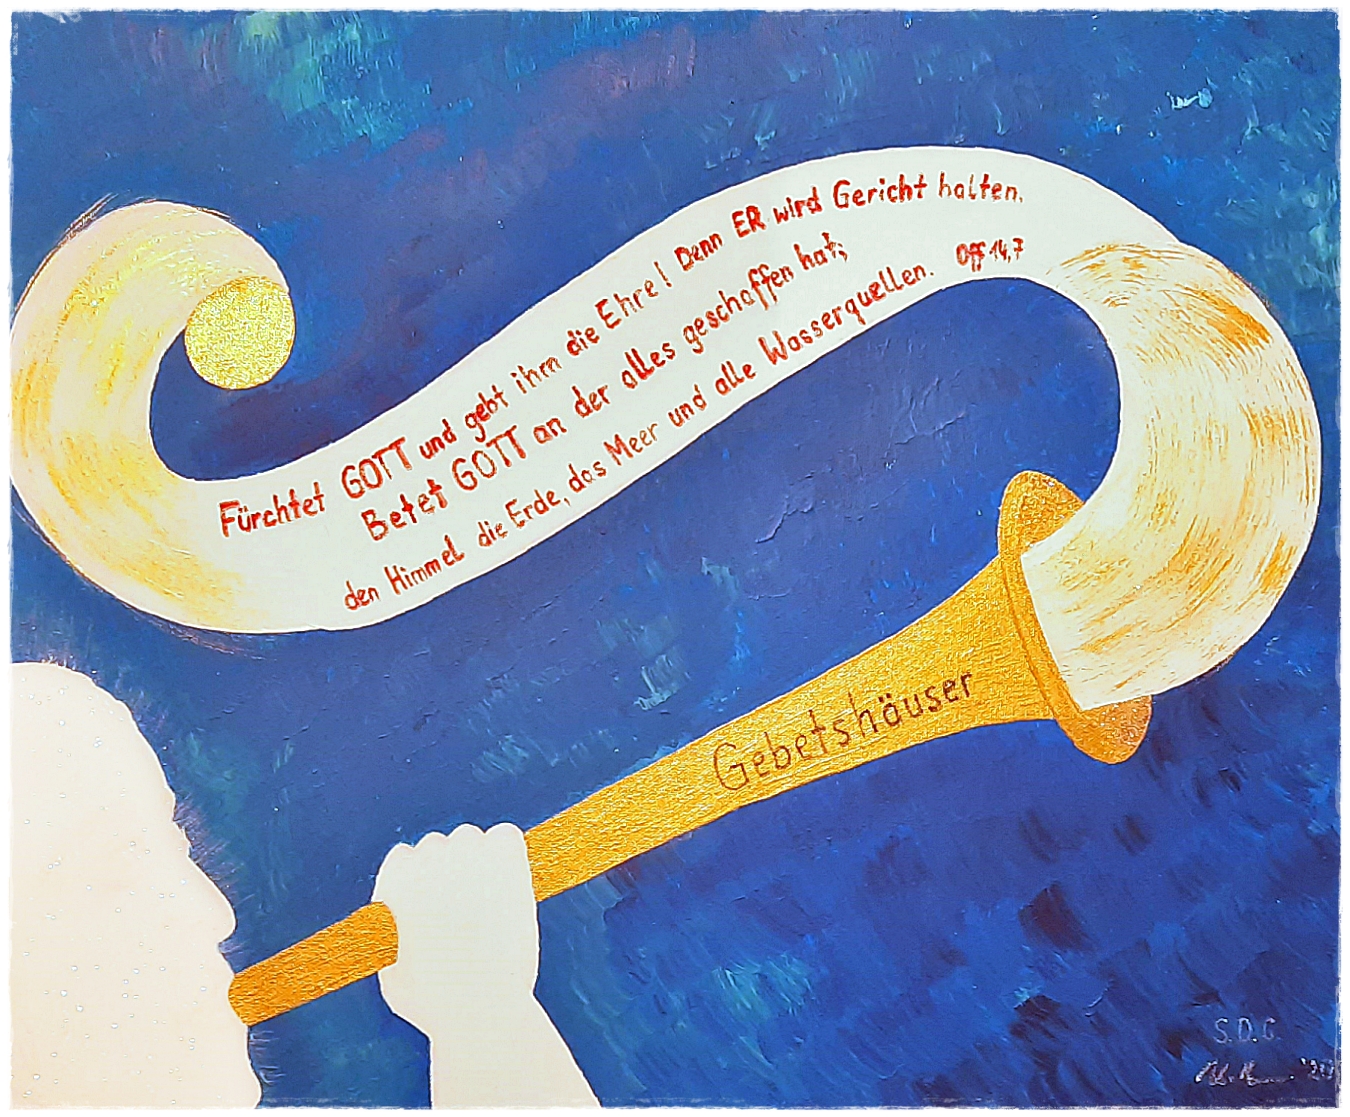 Fürchtet GOTT und gebt ihm die Ehre! Denn ER wird Gericht halten.
Betet GOTT an der alles geschaffen hat;
den Himmel die Erde, das Meer und alle Wasserquellen. Off 14,7
Gebetshäuser
S.D.G.